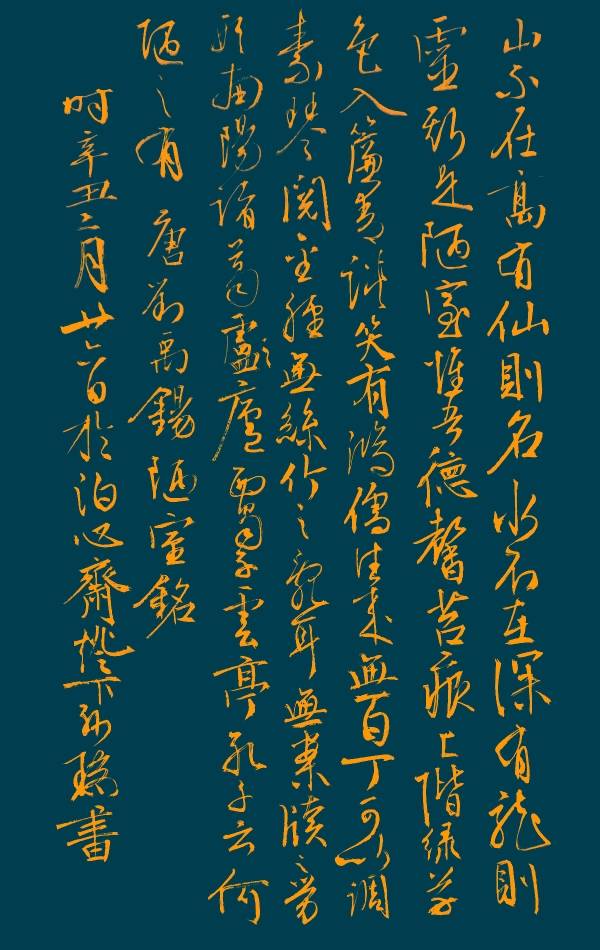 山不在高有仙則名水不在深有龍則
靈斯是陋室惟吾德馨苔痕上階綠草
色入簾青談笑有鴻儒往來無百丁可以調
素琴閱金經無絲竹之亂耳無案牘之勞
形南陽諸葛盧廬西蜀子雲亭孔子云何
陋之有 唐劉禹錫陋室銘
時辛丑二月廿六日於泊心齋燈下書